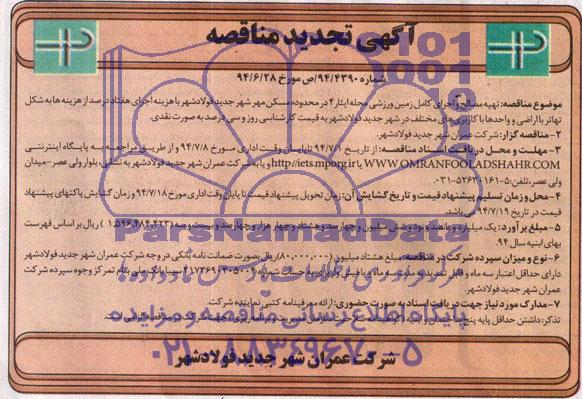 آگهی تجدید مناقصه
شماره ۹۴/۴۳۹۰/ص مورخ ۹۴/۶/۲۸
موضوع مناقصه: تهیه مصالح و اجرای کامل زمین ورزشی محله ایثار ۴ در محدوده مسکن مهر شهر جدید فولادشهر با هزینه اجرای هفتاد درصد از هزینه ها به شکل
تهاتر با اراضی و واحدها با کاربری های مختلف در شهر جدید فولادشهر به قیمت کارشناسی روز و سی درصد به صورت نقدی.
۲- مناقصه گزار: شرکت عمران شهر جدید فولادشهر.
۳- مهلت و محل دریافت اسناد مناقصه: از تاریخ ۹۴/۷/۱ تا پایان وقت اداری مورخ ۹۴/۷/۸ و از طریق مراجعه به پایگاه اینترنتی
WWW.OMRANFOOLADSHAHR.COM یا http://iets.mporg.ir و یا به شرکت عمران شهر جدید فولادشهر به نشانی، بلوار ولی عصر - میدان
ولی عصر، تلفن: ۵-۵۲۶۳۰۱۶۱-۰۳۱
۴- محل و زمان تسلیم پیشنهاد قیمت و تاریخ گشایش آن: زمان تحویل پیشنهاد قیمت تا پایان وقت اداری مورخ ۹۴/۷/۱۸ و زمان گشایش پاکتهای پیشنهاد
قیمت در تاریخ ۹۴/۷/۱۹ می باشد.
۵- مبلغ برآورد: یک میلیارد و پانصد و نود و شش میلیون و چهارصد و هشتاد و چهار هزار و چهارصد و بیست و سه (۱,۵۹۶,۴۸۴,۴۲۳) ریال بر اساس فهرست
بهای ابنیه سال ۹۴.
۶- نوع و میزان سپرده شرکت در مناقصه: مبلغ هشتاد میلیون (۸۰,۰۰۰,۰۰۰) ریال بصورت ضمانت نامه بانکی در وجه شرکت عمران شهر جدید فولادشهر
دارای حداقل اعتبار سه ماه و قابل تمدید به مدت سه ماه و یا فیش واریزی به حساب شماره بانک ملی بنام تمرکز وجوه سپرده شرکت
عمران شهر جدید فولادشهر.
۷- مدارک مورد نیاز جهت دریافت اسناد به صورت حضوری: ارائه معرفینامه کتبی نماینده شرکت.
تذکر: داشتن حداقل پایه پنج
شرکت عمران شهر جدید فولادشهر
ParsNamadData
پایگاه اطلاع رسانی مناقصه و مزایده
۰۲۱-۸۸۳۴۹۶۷۰-۵